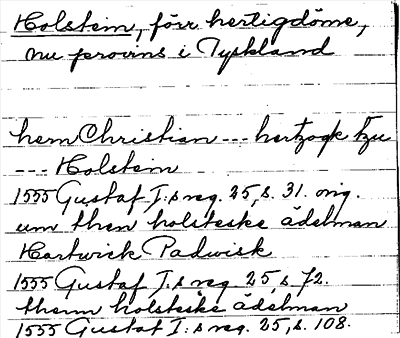 Holstein, förr hertigdöme,
nu provins i Tyskland
hem Christian --- hertzogk tzu
--- Holstein
1555 Gustaf I:s reg. 25, s. 31. orig.
um then holsteske ädelman
Hartwick Padwisk
1555 Gustaf I:s reg. 25, s. 72.
themn holsteske ädelman
1555 Gustaf I:s reg. 25, s. 108.